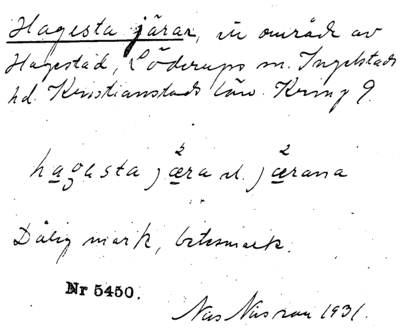 Hagesta järar, ett område av
Hagestad, Löderups sn. Ingelstads
hd. Kristianstads län. Kring 9.
hagasta jæra el. jærana
2 2
Dålig mark, betesmark.
Nr 5450.
1931.